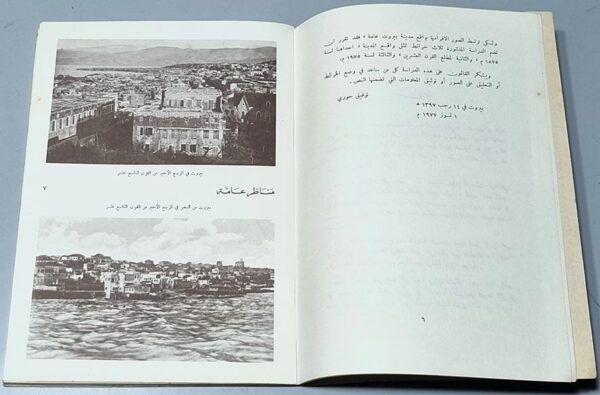 ولكي ترتبط الصور الافرادية بواقع مدينة بيروت عامة ، فقد تقرر ان
تضم الدراسة المنشورة ثلاث خرائط تمثل واقع المدينة ، احداها لسنة
١٨٧٥ م ، والثانية لمطلع القرن العشرين ، والثالثة لسنة ١٩٧٥ م.
ويشكر القائمون على هذه الدراسة كل من ساعد في وضع الخرائط
أو التعليق على الصور أو توثيق المعلومات التي تضمنها النص.
توفيق حوري
بيروت في ١٤ رجب ١٣٩٧ ه
١ تموز ١٩٧٧ م
٦
بيروت في الربع الأخير من القرن التاسع عشر
مناظر عامة
٧
بيروت من البحر في الربع الأخير من القرن التاسع عشر